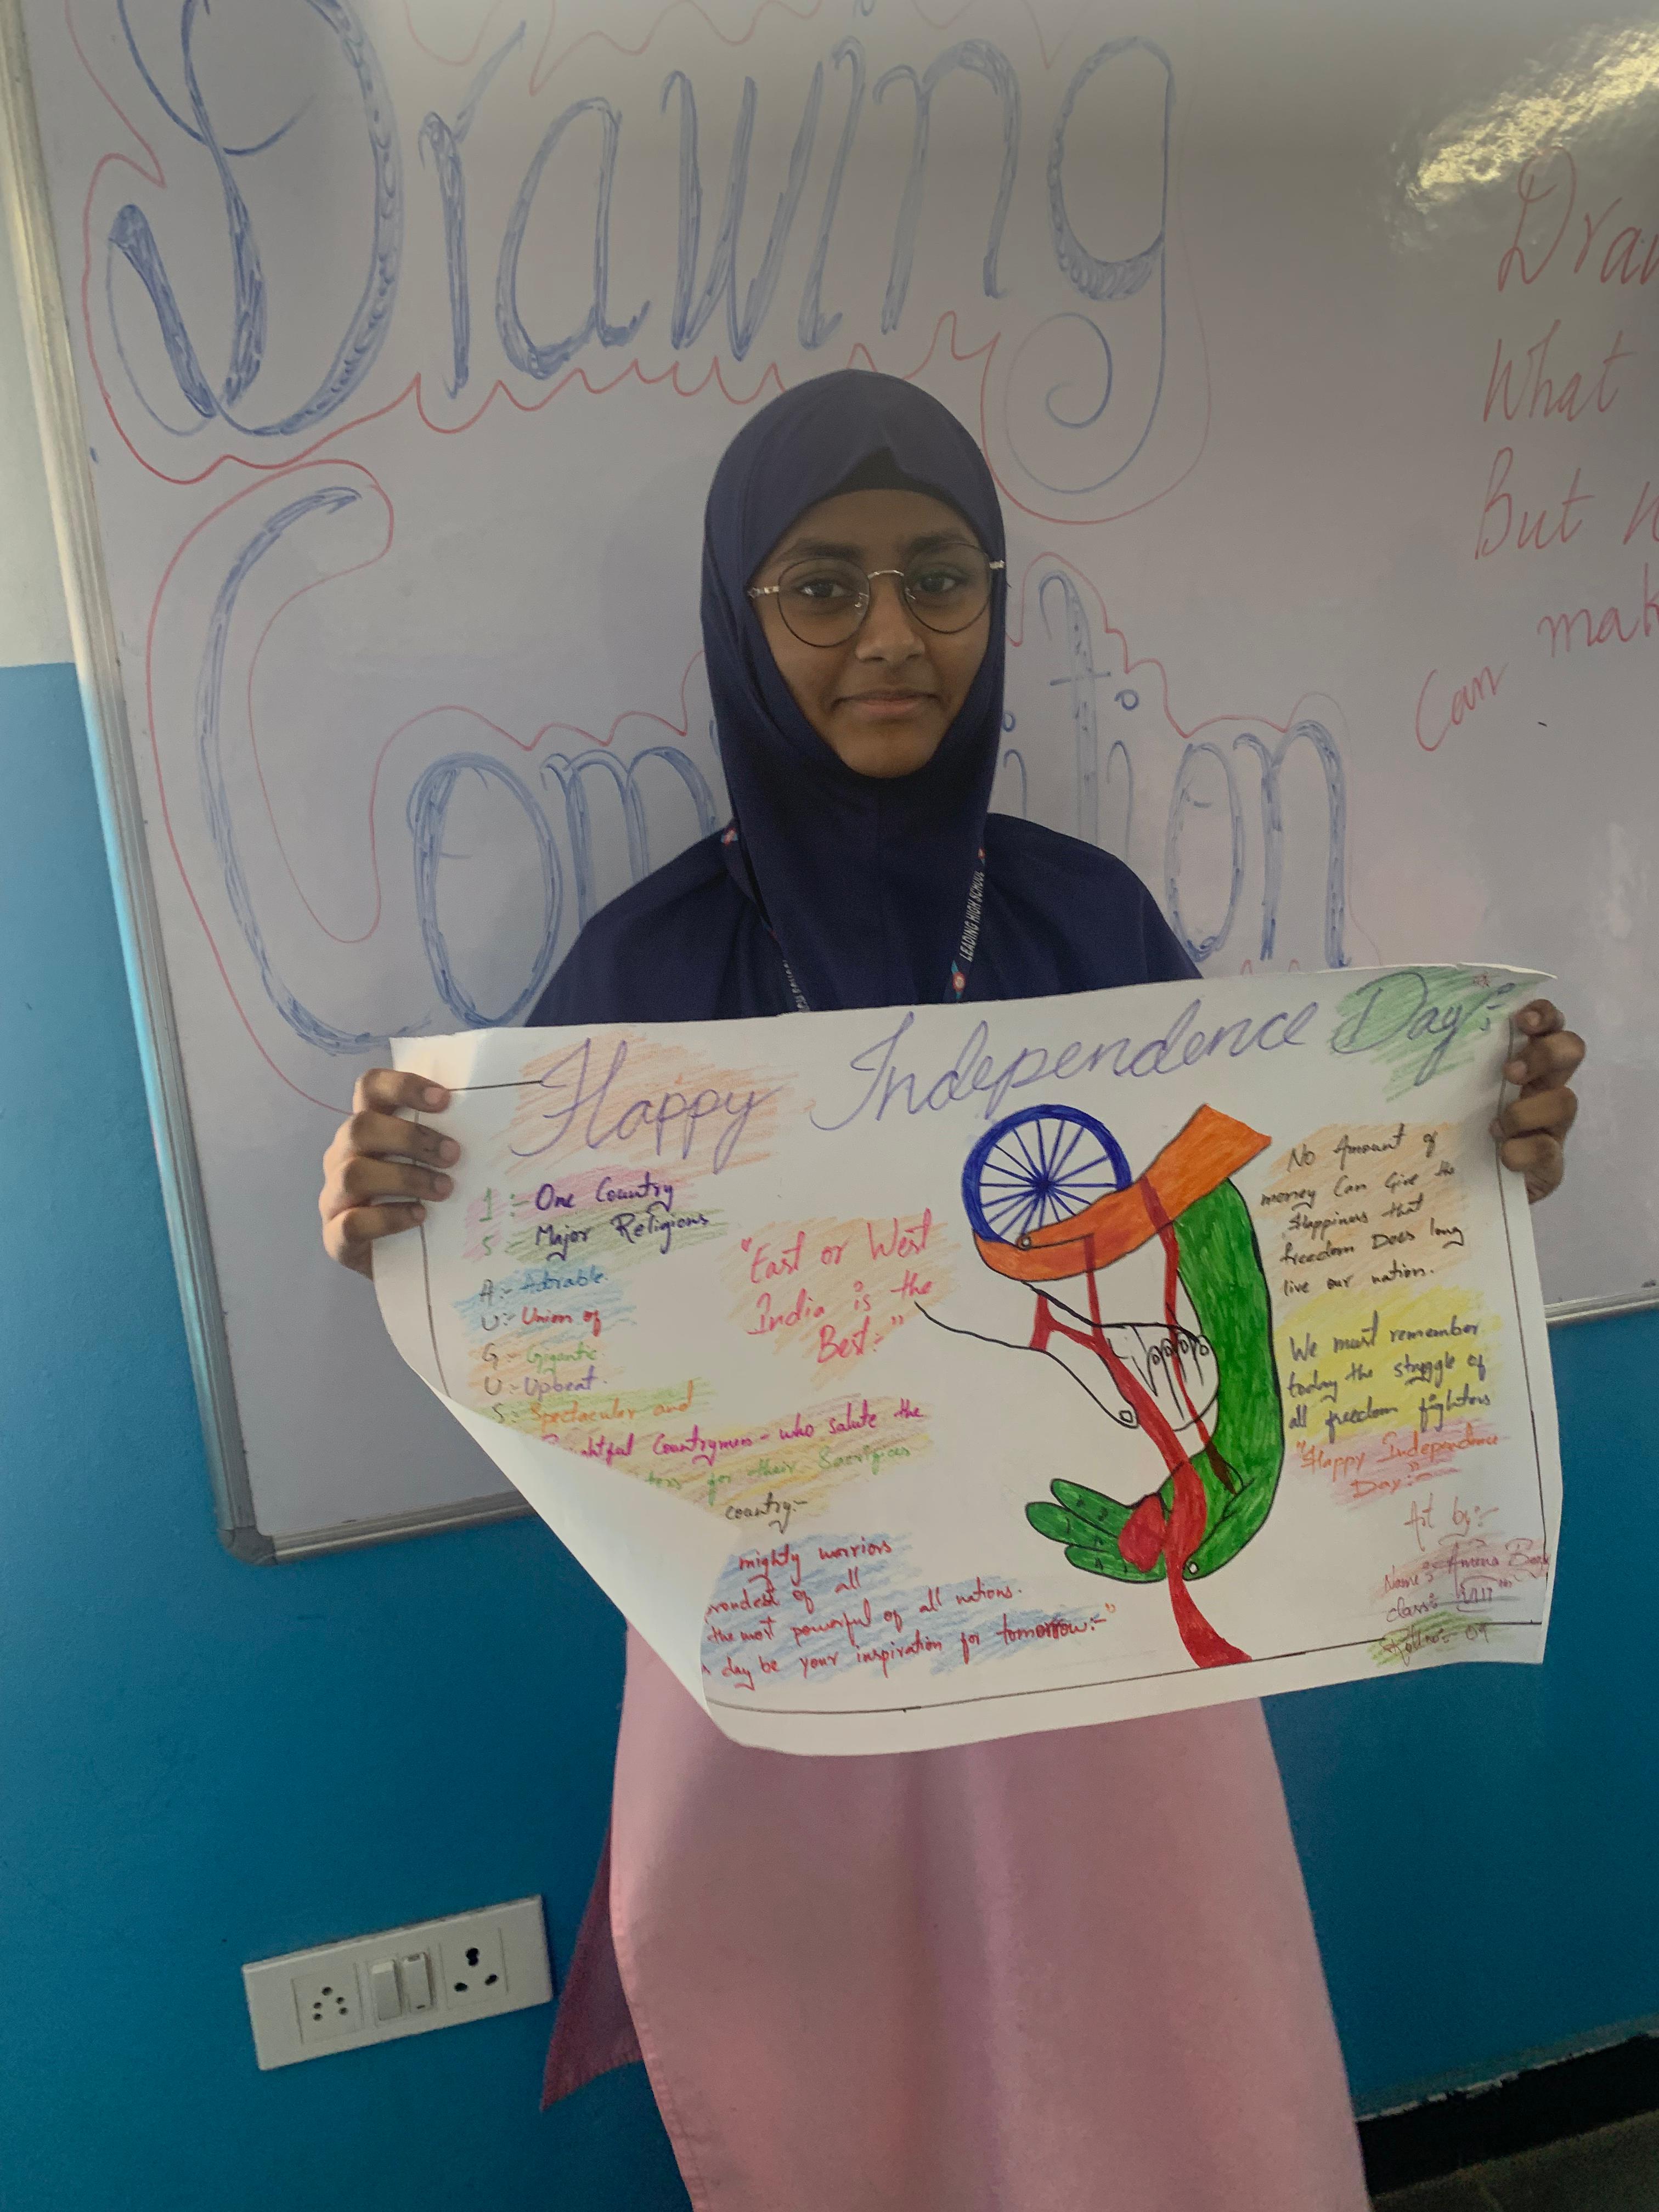 Drawing
Com tion
Draw
What
But n
mak
Can
LEADING HIGH SCHOOL
Happy Independence Day:-
1:- One Country
5:- Major Religions
A:- Adorable.
U:- Union of
G:- Gigantic
U:- Upbeat.
S:- Spectacular and
ghtful Countrymen - who salute the
ters for their Sacrifices
country:-
"East or West
India is the
Best:-"
mighty warriors
rondest of all
the most powerful of all nations.
day be your inspiration for tomorrow:-"
No Amount of
money Can Give the
Happiness that
freedom Does long
live our nation.
We must remember
today the struggle of
all freedom fighters
"Happy Independence
Day:-"
Art by:-
Name:- Amena
class:-
Rollno:- 09